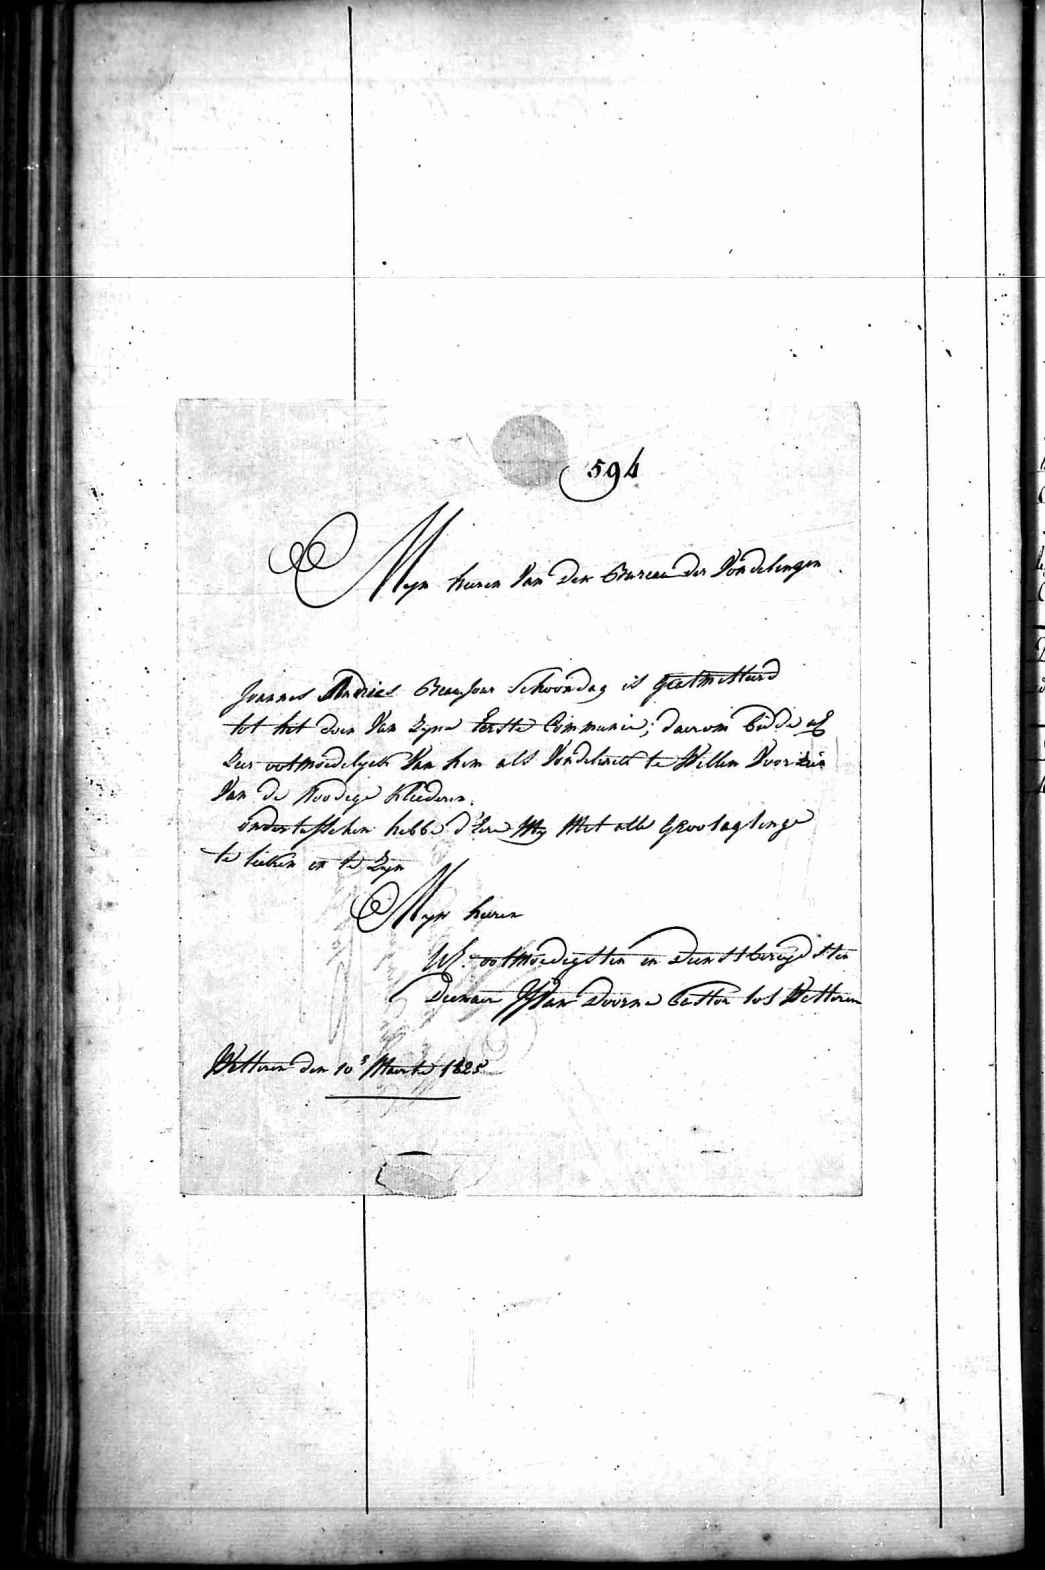 594
Mijn heeren Van den Bureau der Vondelingen
Joannes Andries Beaujour Schoondag is geadmitteerd
tot het doen Van Zyne Eerste Communie; daerom bidde ul
Zeer ootmoedelyck Van hem als Vondelinck te Willen Voorzien
Van de Noodige kleederen.
ondertusschen hebbe d'Eere My Met alle
te en te Zyn
Mijn heeren
Ul. ootmoedigsten en Dienstbereydsten
Dienaer Van Doorne Pastor tot Wetteren
Wetteren den 10 Maerte 1825